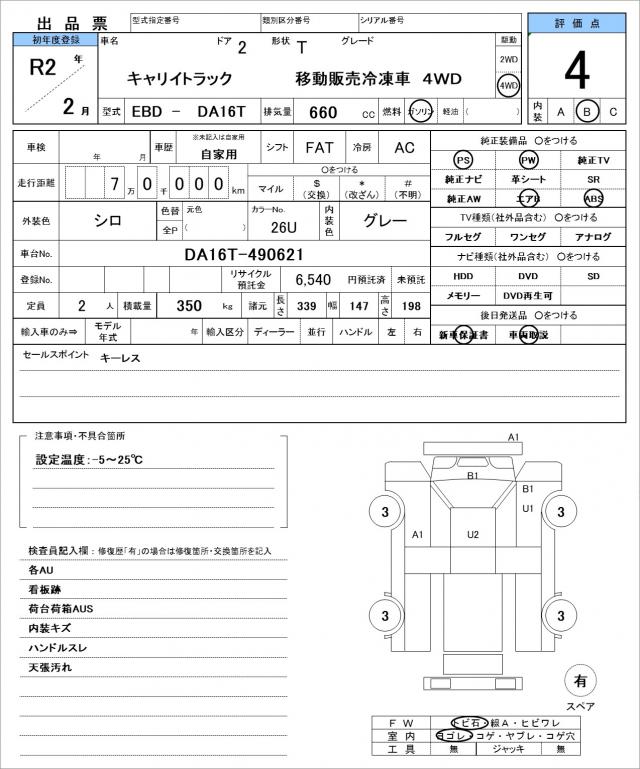 出品票 型式指定番号 類別区分番号 シリアル番号 評価点
初年度登録 車名 ドア 2 形状 T グレード 駆動
R2 年 2WD
キャリイトラック 移動販売冷凍車 4WD 4WD 4
2 月 型式 EBD − DA16T 排気量 660 cc 燃料 ガソリン 軽油 ( ) 内装 A B C
車検 年 月 車歴 ※未記入は自家用 自家用 シフト FAT 冷房 AC 純正装備品 〇をつける
PS PW 純正TV
走行距離 7 万 0 千 0 0 0 km 〇をつける
マイル $ (交換) * (改ざん) # (不明) 純正ナビ 革シート SR
純正AW エアB ABS
外装色 シロ 色替 元色 カラーNo. 26U 内装色 グレー TV種類(社外品含む) 〇をつける
全P ( ) フルセグ ワンセグ アナログ
車台No. DA16T-490621 ナビ種類(社外品含む) 〇をつける
登録No. リサイクル預託金 6,540 円預託済 未預託 HDD DVD SD
メモリー DVD再生可
定員 2 人 積載量 350 kg 諸元 長さ 339 幅 147 高さ 198 後日発送品 〇をつける
輸入車のみ⇒ モデル年式 年 輸入区分 ディーラー 並行 ハンドル 左 右 新車保証書 車両取説
セールスポイント キーレス
注意事項・不具合箇所
設定温度:-5～25℃
検査員記入欄:修復歴「有」の場合は修復箇所・交換箇所を記入
各AU
看板跡
荷台荷箱AUS
内装キズ
ハンドルスレ
天張汚れ
A1
B1
B1
U1
3 3
A1 U2
3 3
有
スペア
FW トビ石・線A・ヒビワレ
室内 ヨゴレ・コゲ・ヤブレ・コゲ穴
工具 無 ジャッキ 無